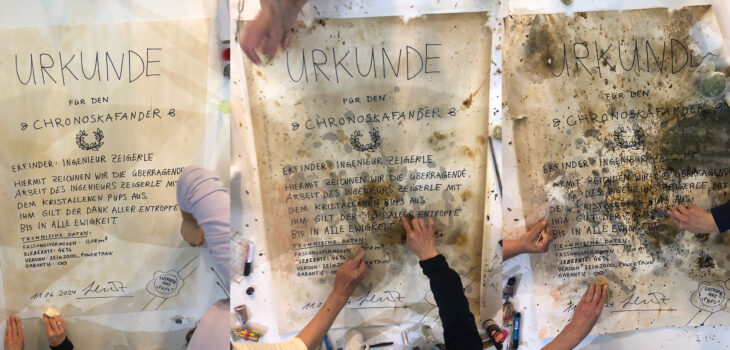 URKUNDE
FÜR DEN
CHRONOSKAFANDER
ERFINDER: INGENIEUR ZEIGERLE
HIERMIT ZEICHNEN WIR DIE ÜBERRAGENDE
ARBEIT DES INGENIEURS ZEIGERLE MIT
DEM KRISTALLENEN PUPS AUS.
IHM GILT DER DANK ALLER
BIS IN ALLE EWIGKEIT.
TECHNISCHE DATEN:
FASSUNGSVERMÖGEN:
KLEBERATE: 46%
VERSION:
GARANTIE: ∞
11.06.2024
URKUNDE
FÜR DEN
CHRONOSKAFANDER
ERFINDER: INGENIEUR ZEIGERLE
HIERMIT ZEICHNEN WIR DIE ÜBERRAGENDE
ARBEIT DES INGENIEURS ZEIGERLE MIT
DEM KRISTALLENEN PUPS AUS.
IHM GILT DER ALLER
BIS IN ALLE EWIGKEIT.
TECHNISCHE DATEN:
FASSUNGSVERMÖGEN:
KLEBERATE: 46%
VERSION:
GARANTIE: ∞
URKUNDE
FÜR DEN
CHRONOSKAFANDER
ERFINDER: INGENIEUR ZEIGERLE
HIERMIT ZEICHNEN WIR DIE
ARBEIT DES INGENIEURS ZEIGERLE
DEM KRISTALLENEN PUPS
IHM GILT DER
BIS IN ALLE EWIGKEIT.
TECHNISCHE DATEN:
FASSUNGSVERMÖGEN:
KLEBERATE: 46%
VERSION:
GARANTIE: ∞